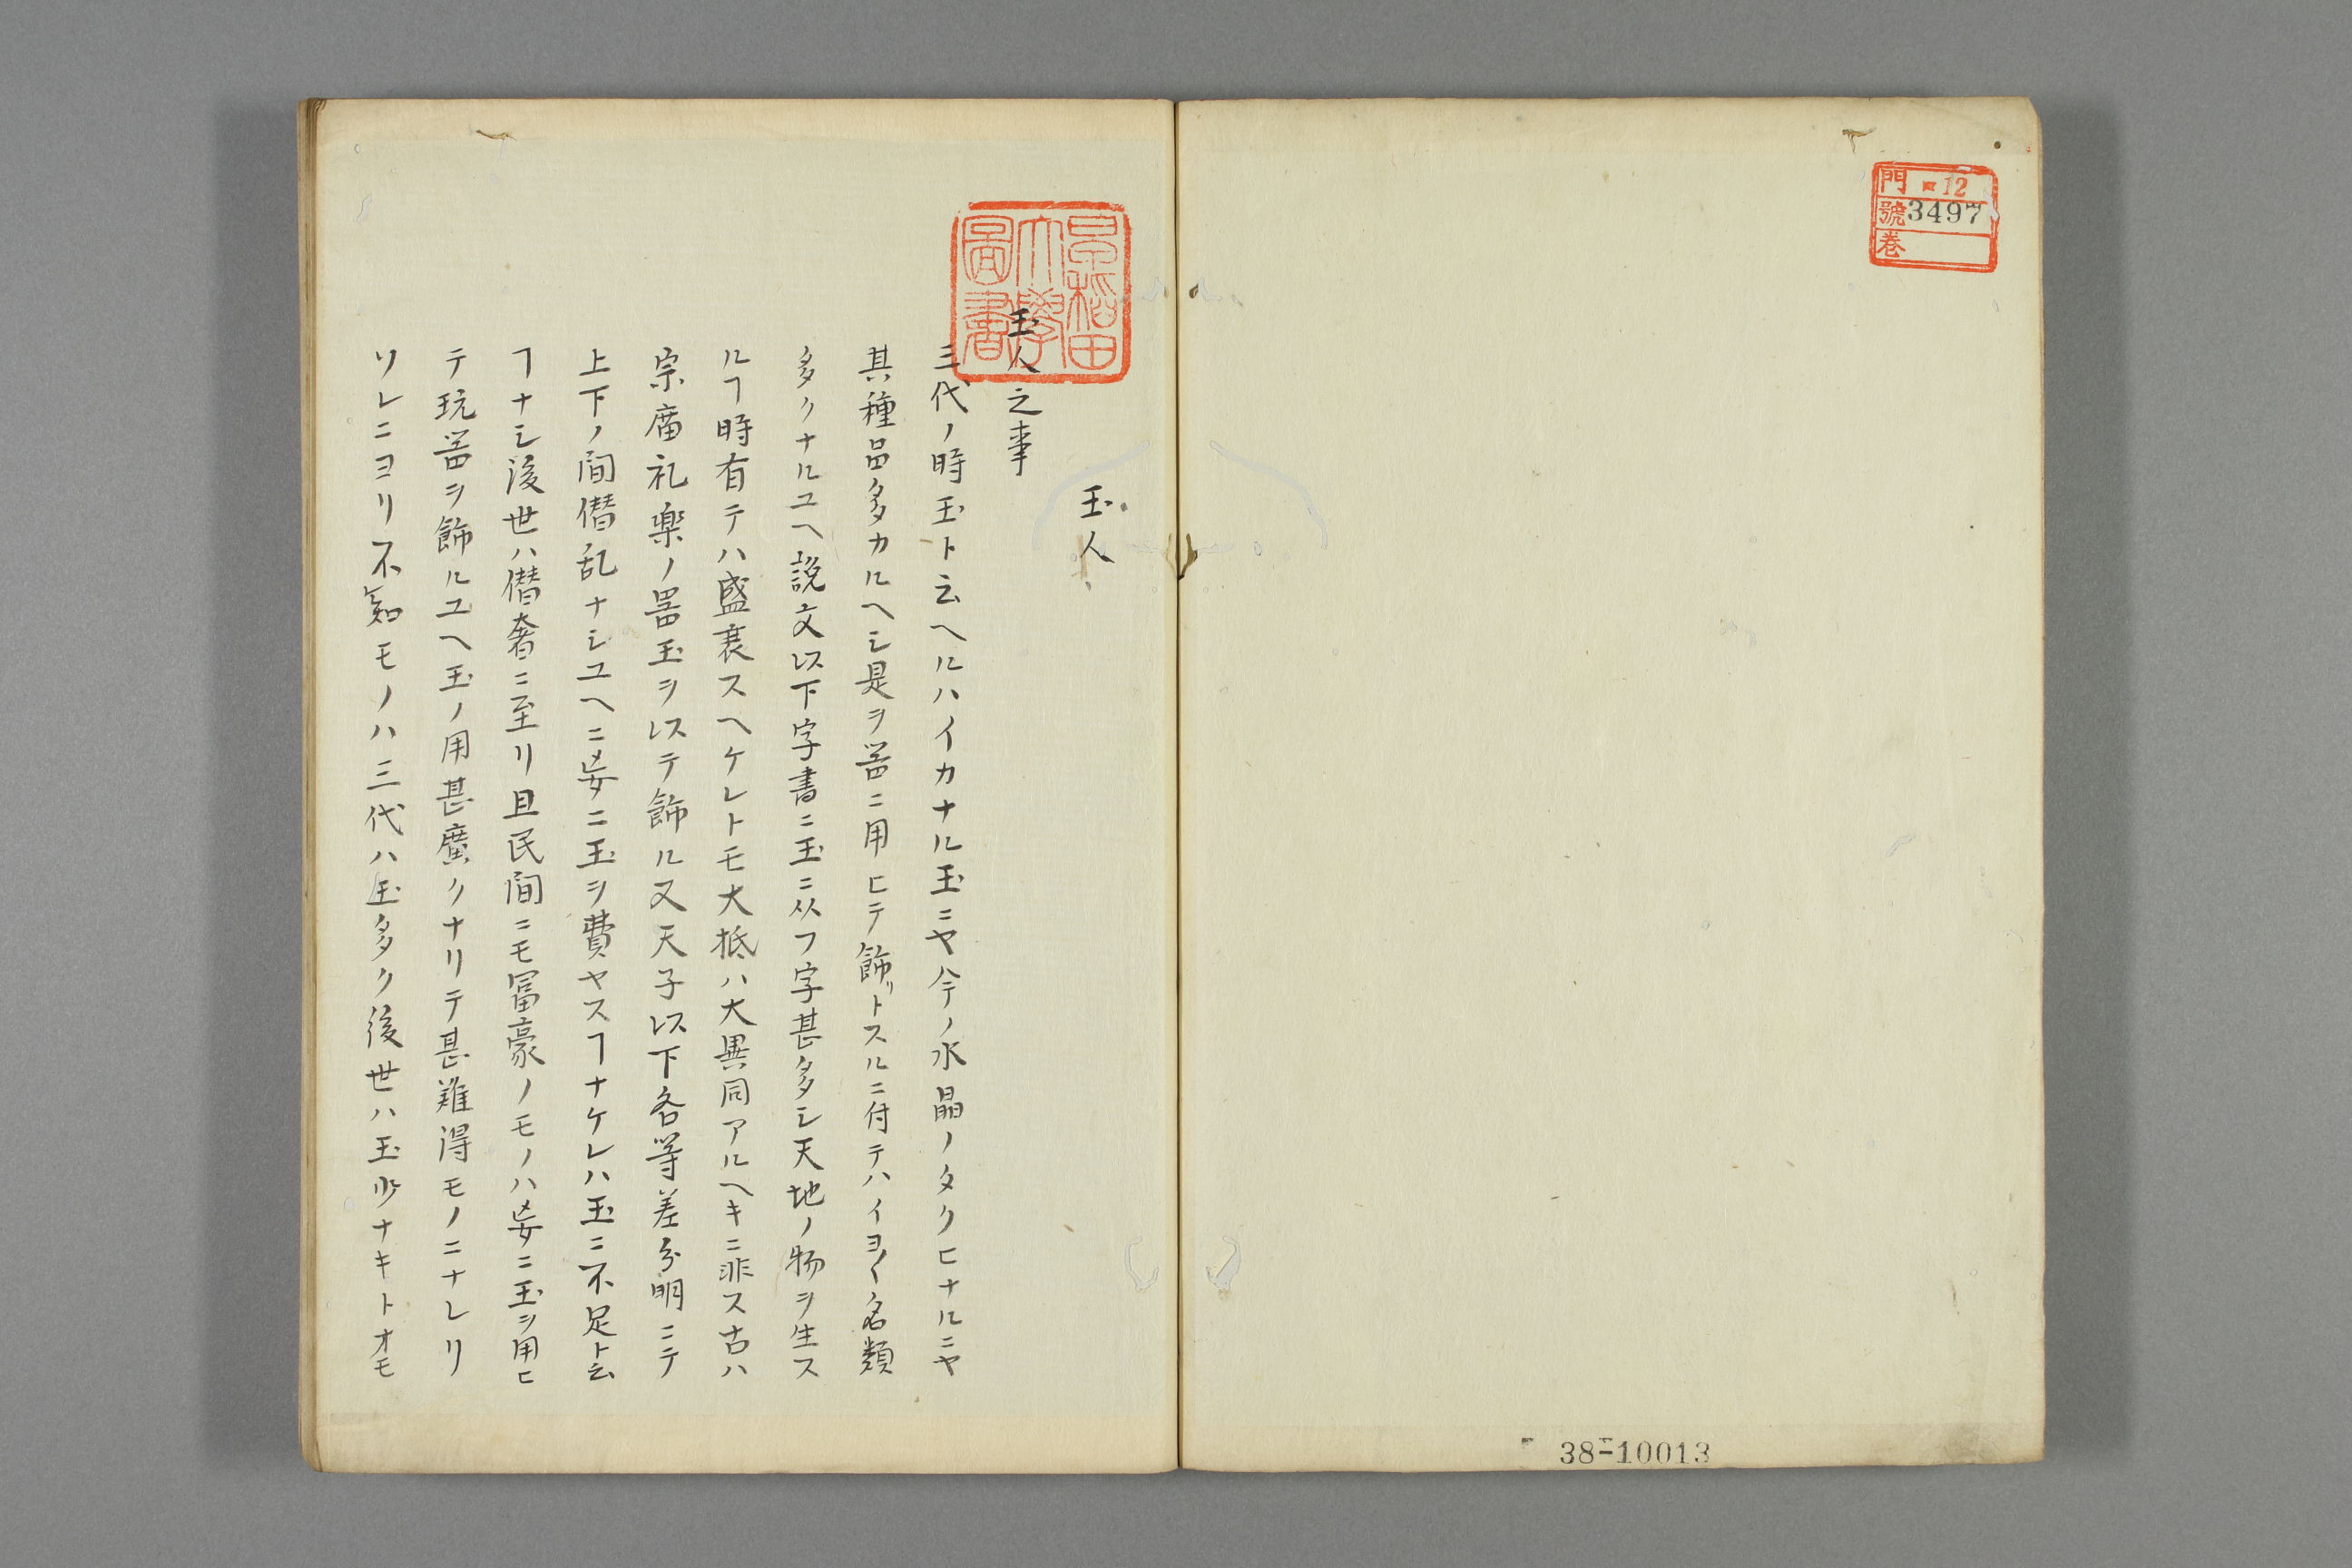 門 ヌ12
號 3497
巻
38-10013
早稲田
大學
圖書
玉人
玉人之事
三代ノ時玉ト云ヘルハイカナル玉ニヤ今ノ水晶ノタクヒナルニヤ
其種品多カルヘシ是ヲ器ニ用ヒテ飾リトスルニ付テハイヨ〱名類
多クナルユヘ説文以下字書ニ玉ニ从フ字甚多シ天地ノ物ヲ生ス
ルヿ時有テハ盛衰スヘケレトモ大抵ハ大異同アルヘキニ非ス古ハ
宗庿礼楽ノ噐玉ヲ以テ飾ル又天子以下各等差分明ニテ
上下ノ間僭乱ナシユヘニ妄ニ玉ヲ費ヤスヿナケレハ玉ニ不足ト云
ヿナシ後世ハ僭奢ニ至リ且民間ニモ冨豪ノモノハ妄ニ玉ヲ用ヒ
テ玩器ヲ飾ルユヘ玉ノ用甚廣クナリテ甚難得モノニナレリ
ソレニヨリ不知モノハ三代ハ玉多ク後世ハ玉少ナキトオモ